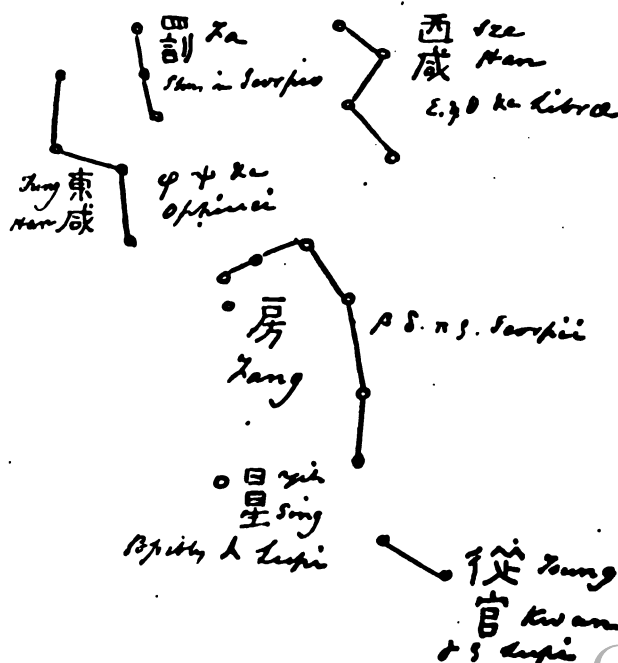 罰 Fa
Stars in Scorpio
西 Sze
咸 Han
Libra
Tung 東
Han 咸
φ ψ
Ophiuci
房
Fang
β δ. π ρ. Scorpii
日 Yih
星 Sing
Lupi
從 Tsung
官 Kwan
Lupi